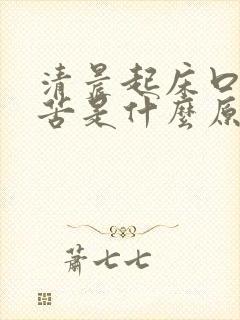 清晨起床口
苦是什麼原
蕭七七